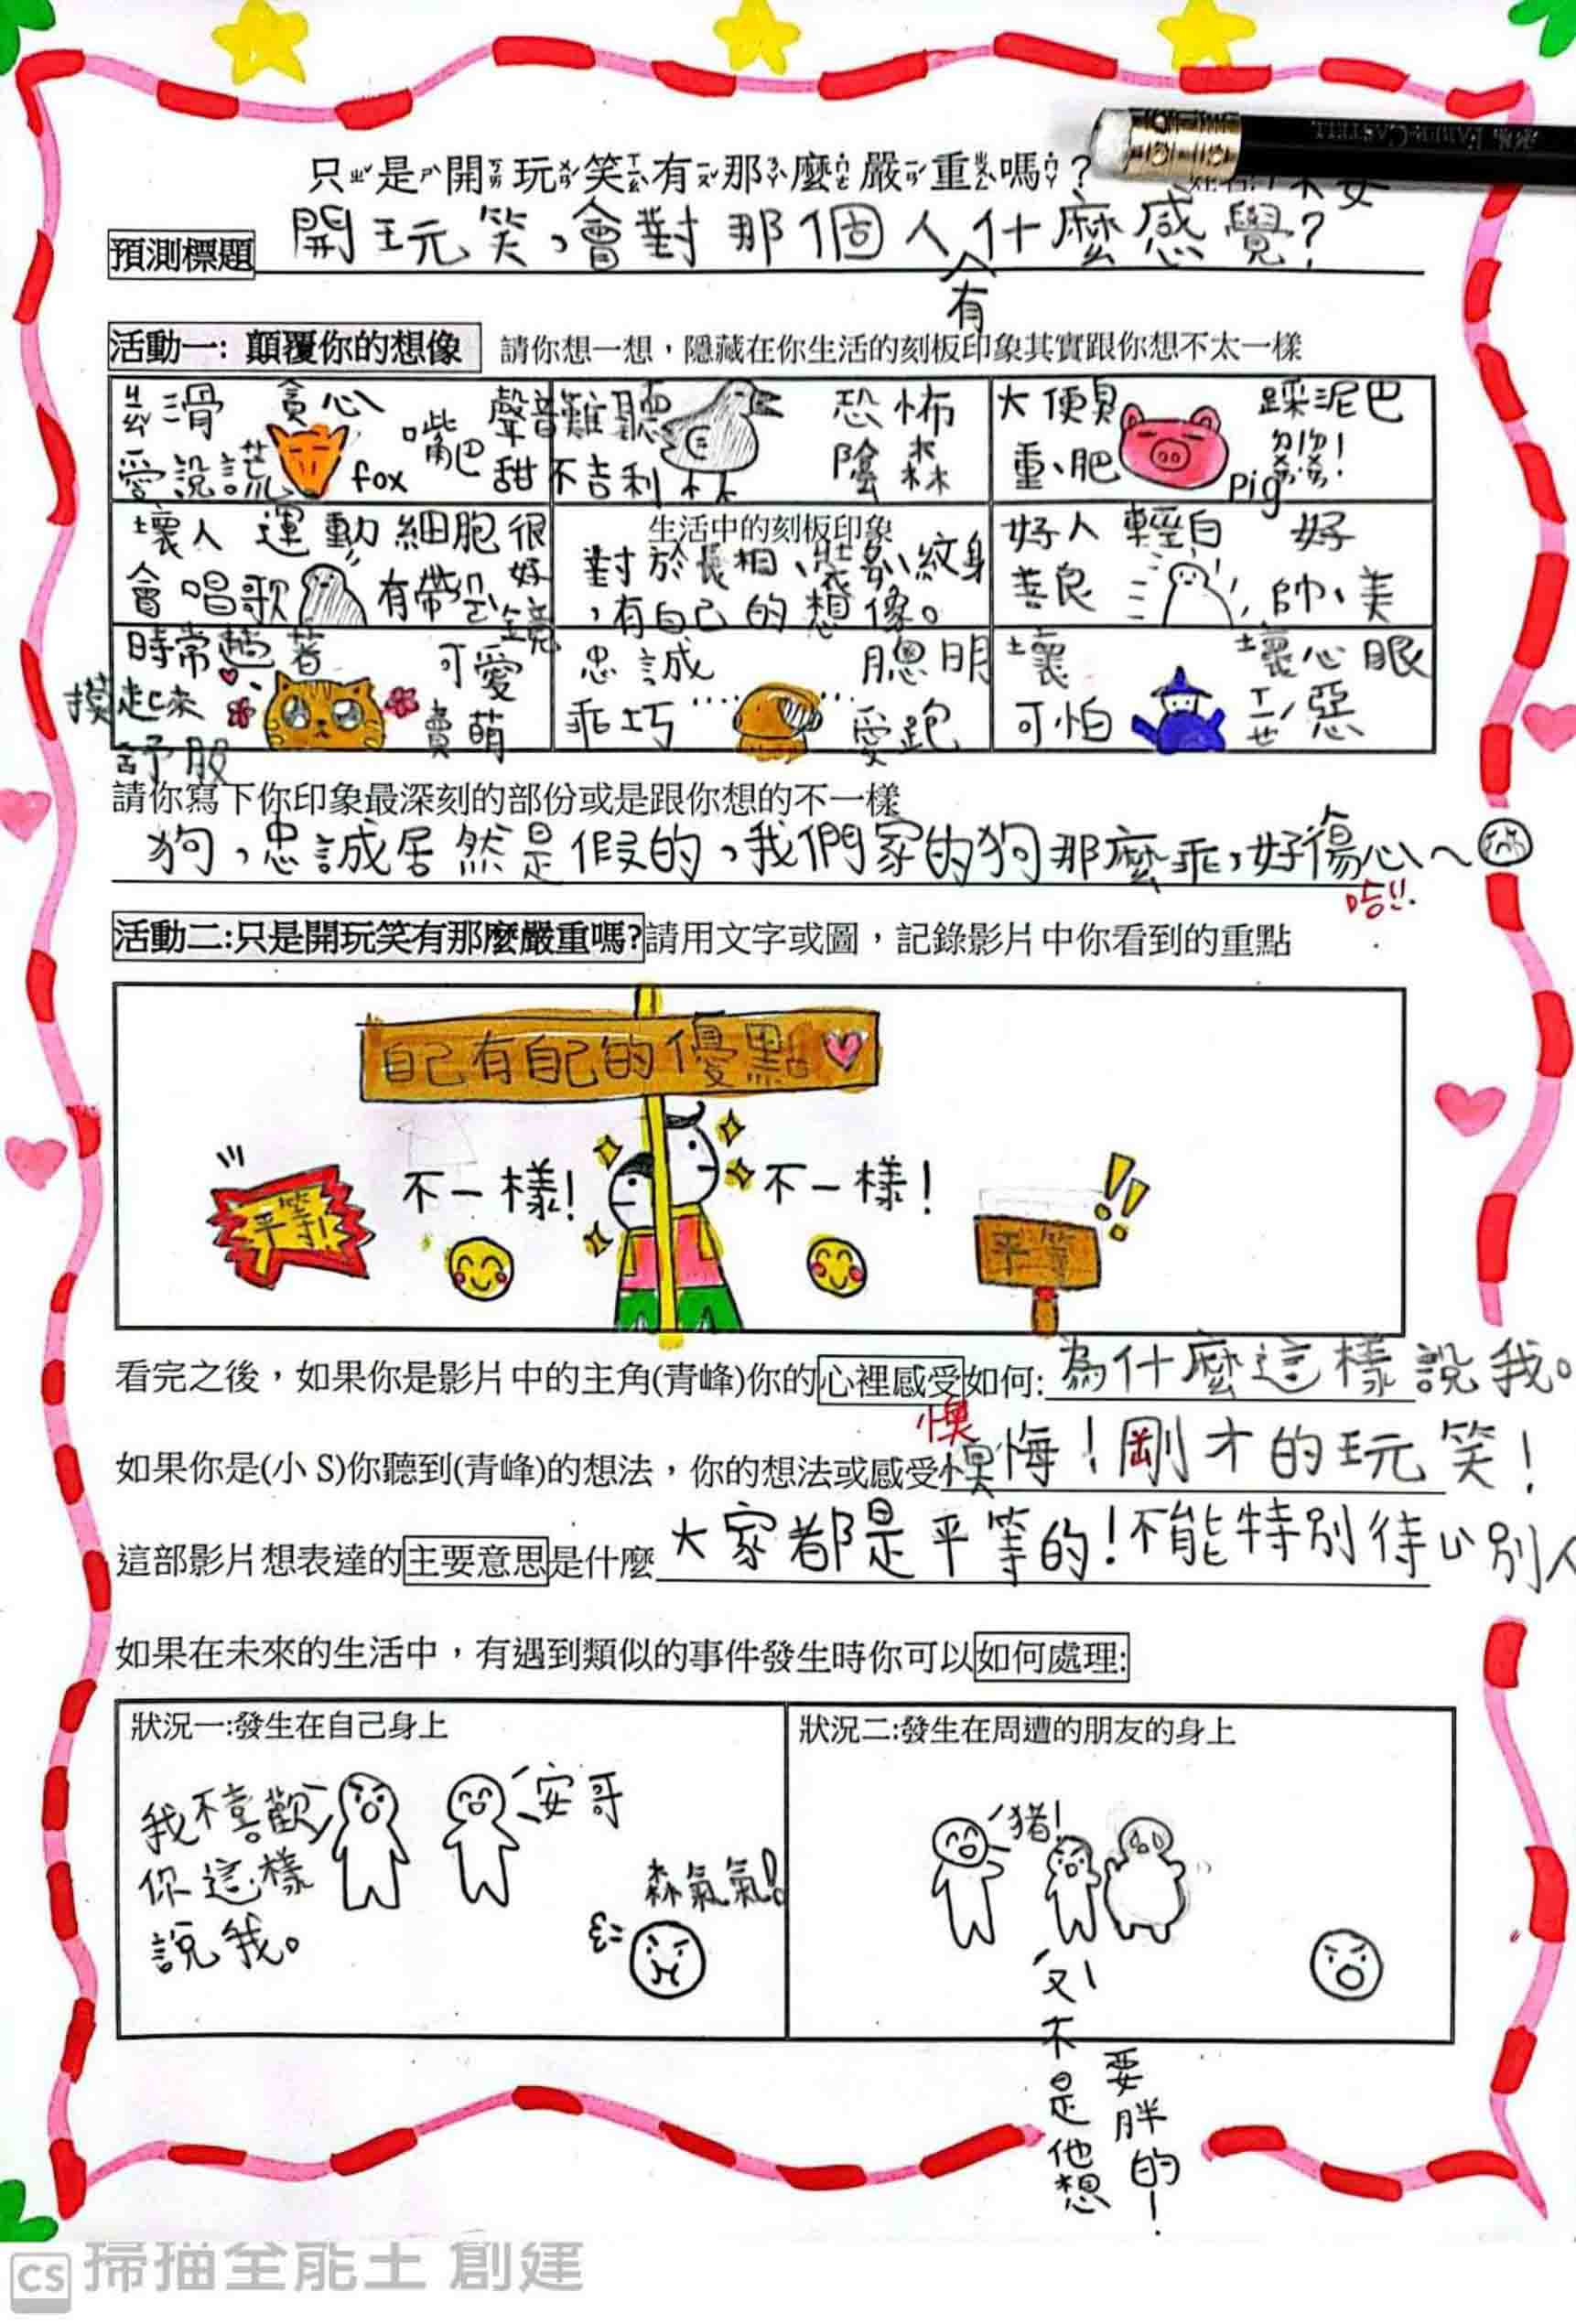 只是開玩笑有那麼嚴重嗎?
預測標題 開玩笑,會對那個人有什麼感覺?
活動一: 顛覆你的想像 請你想一想,隱藏在你生活的刻板印象其實跟你想不太一樣
ㄐㄧㄠ滑 貪心 嘴巴甜
愛說謊 fox
聲音難聽 恐怖
不吉利 陰森
大便臭 踩泥巴
重、肥 pig ㄉㄞㄉㄞ!
壞人 運動細胞很好
會唱歌 有帶墨鏡
生活中的刻板印象
對於長相、裝扮、紋身
,有自己的想像。
好人 輕白 好
善良 帥、美
時常趟著 可愛
摸起來舒服 賣萌
忠誠 聰明
乖巧 愛跑
壞 壞心眼
可怕 ㄒㄧㄝˊ惡
請你寫下你印象最深刻的部份或是跟你想的不一樣
狗,忠誠居然是假的,我們家的狗那麼乖,好傷心~
活動二:只是開玩笑有那麼嚴重嗎?請用文字或圖,記錄影片中你看到的重點
自己有自己的優點
平等! 不一樣! 不一樣! 平等 !!
看完之後,如果你是影片中的主角(青峰)你的心裡感受如何: 為什麼這樣說我。
懊
如果你是(小 S)你聽到(青峰)的想法,你的想法或感受懊悔!剛才的玩笑!
這部影片想表達的主要意思是什麼 大家都是平等的!不能特別待ㄩ別人
如果在未來的生活中,有遇到類似的事件發生時你可以如何處理:
狀況一:發生在自己身上
我不喜歡
你這樣
說我。
安哥
森氣氣!
狀況二:發生在周遭的朋友的身上
豬!
又不是他想
要胖的!
CS 掃描全能王 創建